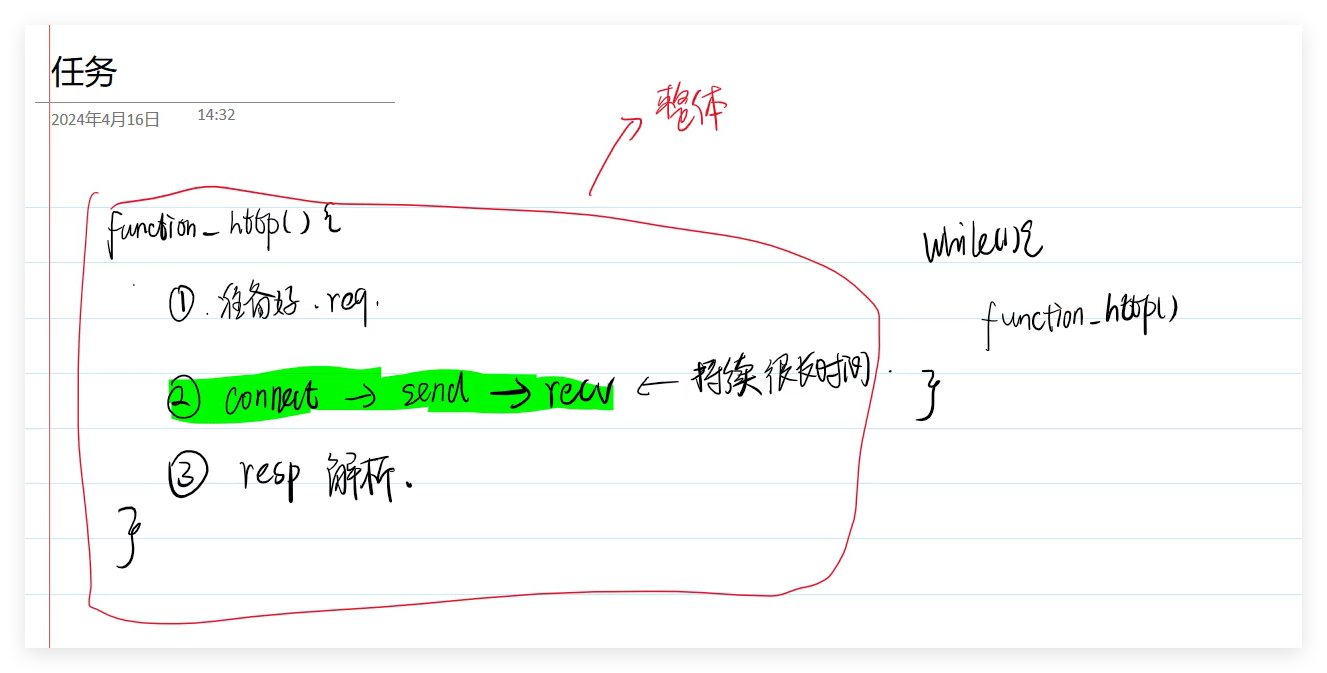 任务
2024年4月16日 14:32
整体
function_http() {
① . 准备好 . req.
② connect → send → recv ← 持续很长时间.
③ resp 解析.
}
while(1){
function_http()
}